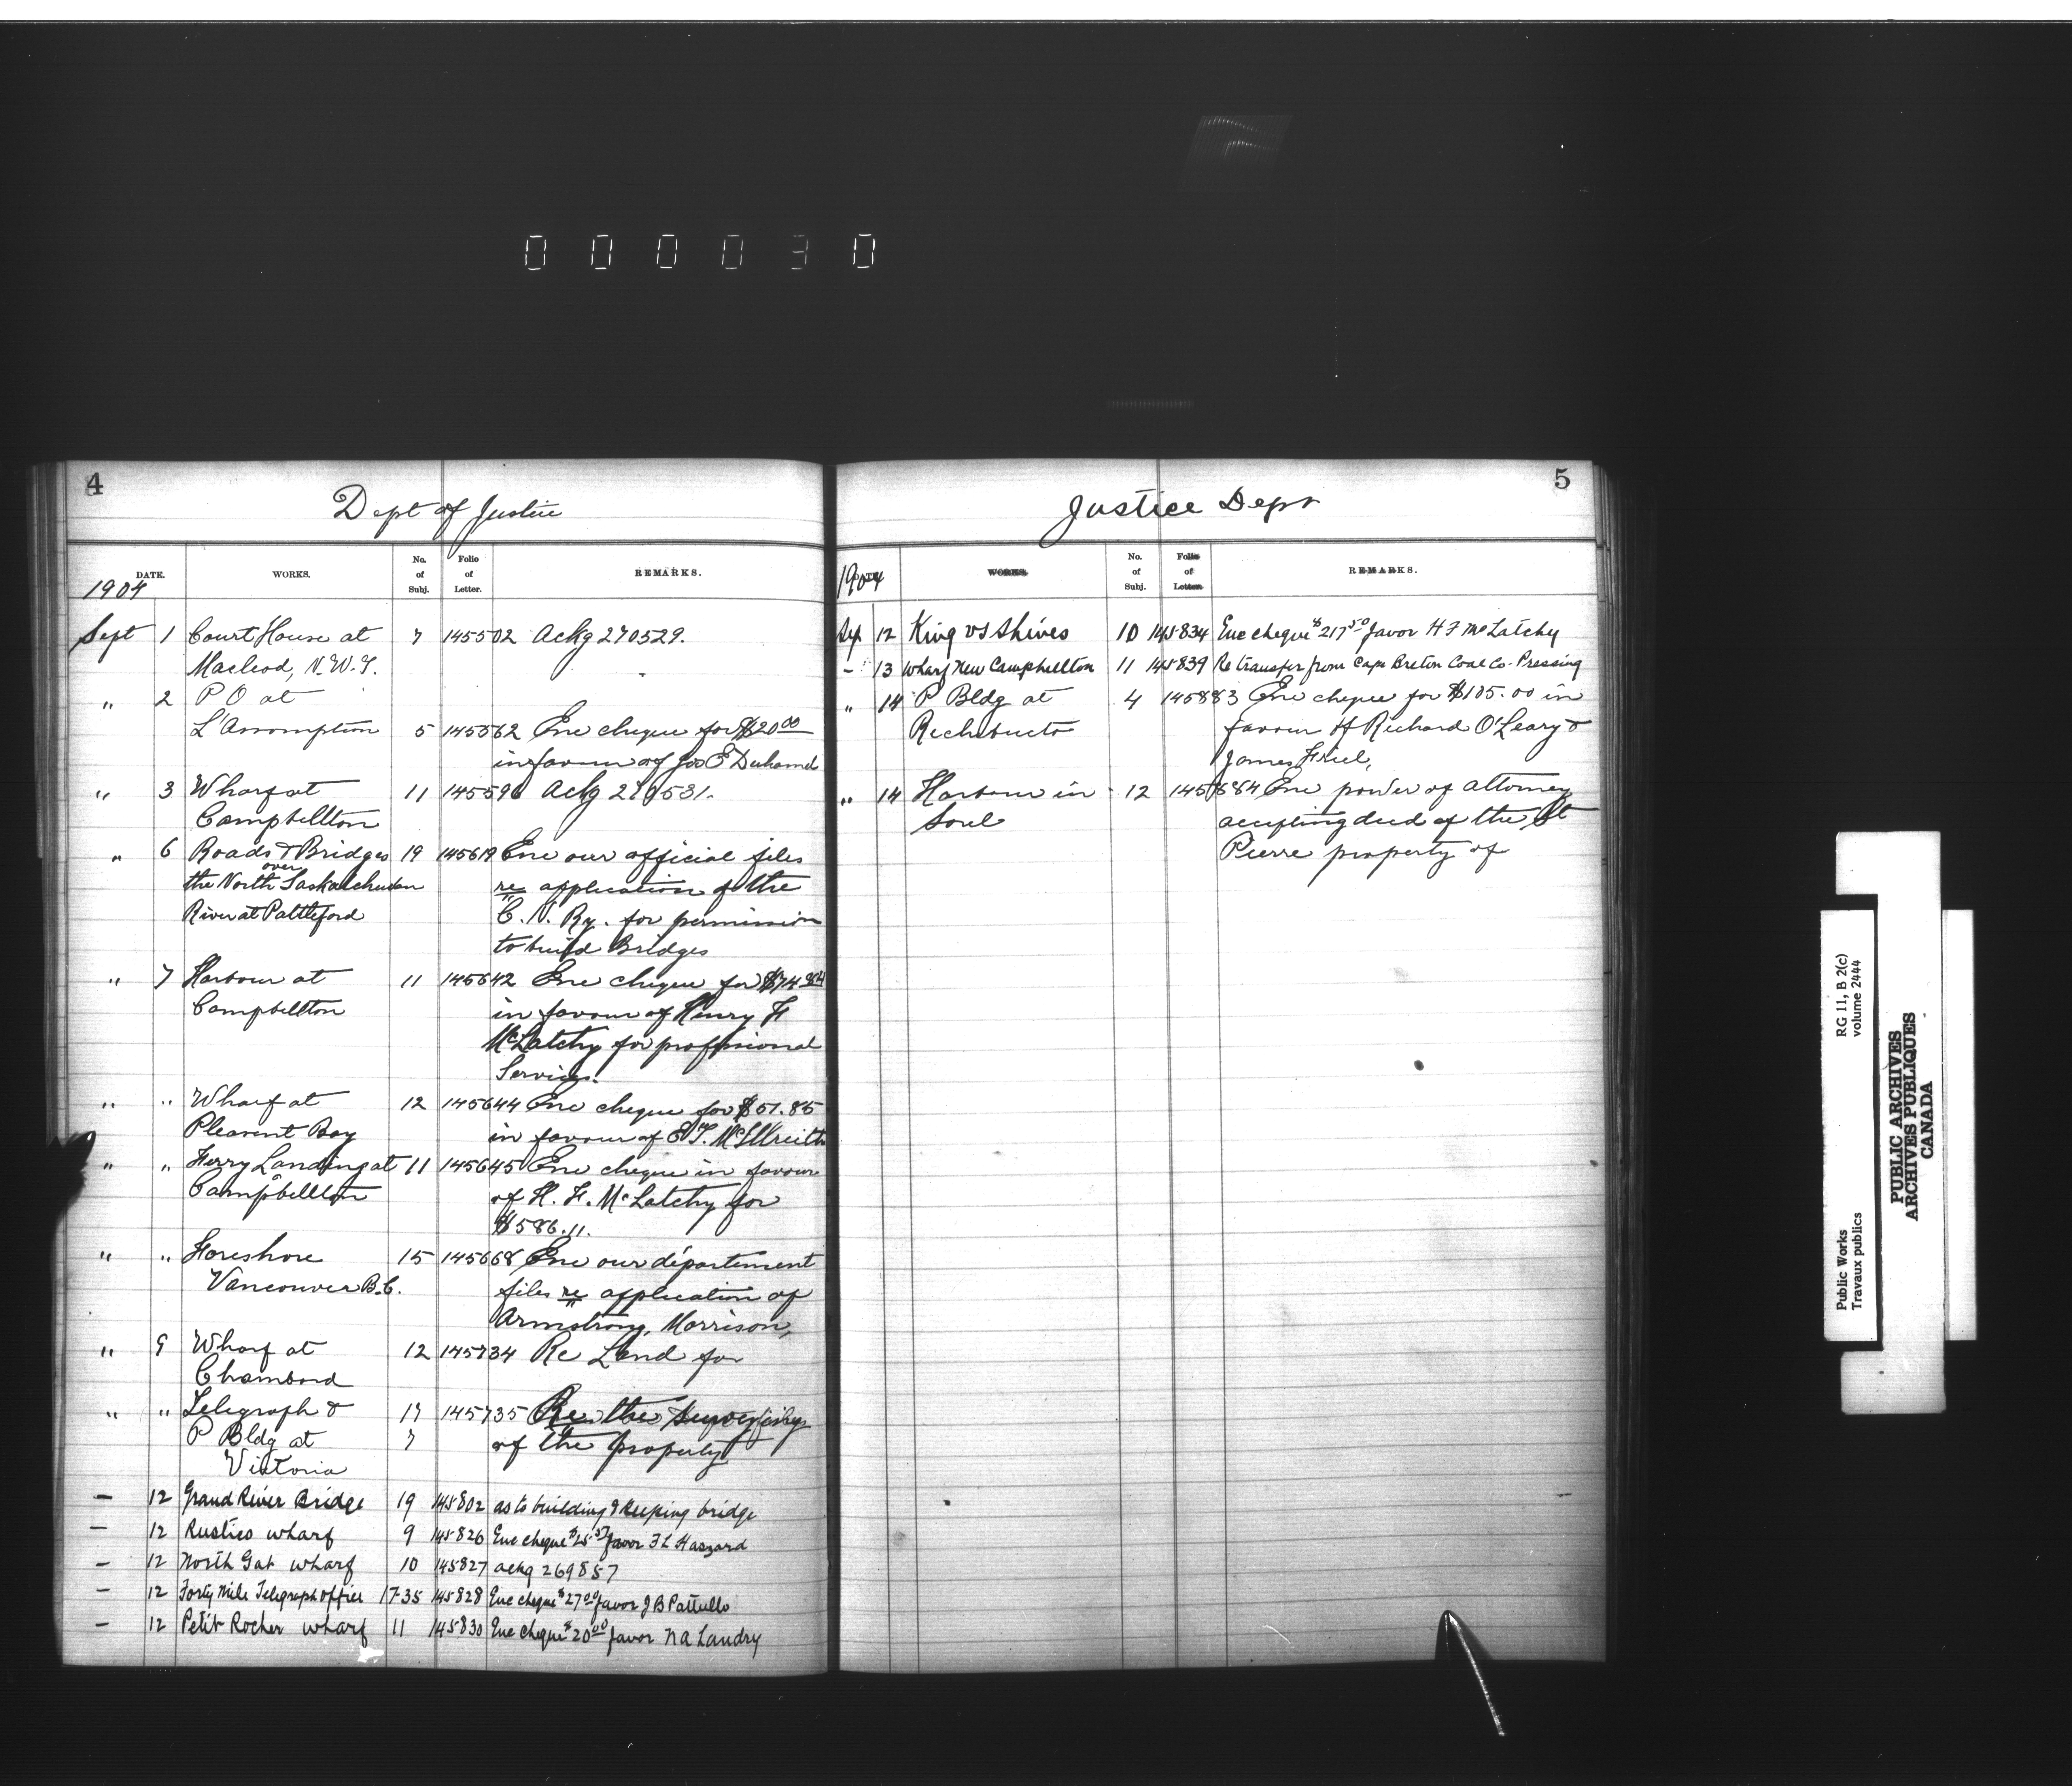 000030
4
Dept of Justice
DATE. WORKS. No. of Subj. Folio of Letter. REMARKS.
1904
Sept 1 Court House at 7 145502 Ackg 270529.
Macleod, N.W.T.
" 2 P O at
L'Assomption 5 145562 Enc cheque for $20 00
in favour of Jos E Duhamel
" 3 Wharf at 11 145596 Ackg 270531.
Campbellton
" 6 Roads & Bridges 19 145619 Enc our official files
over
the North Saskatchewan re application of the
River at Battleford C. N. Ry. for permission
to build Bridges
" 7 Harbour at 11 145642 Enc cheque for $74 84
Campbellton in favour of Henry F
McLatchy for proffsional
Services.
" " Wharf at 12 145644 Enc cheque for $51.85
Pleasent Bay in favour of E T. McIllreith
" " Ferry Landing at 11 145645 Enc cheque in favour
Campbellton of H. F. McLatchy for
$586.11.
" " Foreshore 15 145668 Enc our département
Vancouver B.C. files re application of
Armstrong, Morrison,
" 9 Wharf at 12 145734 Re Land for
Chambord
" " Telegraph & 17 145735 Re the
P Bldg at 7 of the property
Victoria
— 12 Grand River Bridge 19 145802 as to building & keeping bridge
— 12 Rustico wharf 9 145826 Enc cheque $25 57 favor F L Haszard
— 12 North Gat wharf 10 145827 ackg 269857
— 12 Forty Mile Telegraph office 17-35 145828 Enc cheque $27 00 favor J B Pattullo
— 12 Petit Rocher wharf 11 145830 Enc cheque $20 00 favor N A Landry
5
Justice Dept
DATE WORKS. No. of Subj. Folio of Letter. REMARKS.
1904
Sep 12 King vs Shives 10 145834 Enc cheque $217 50 favor H F McLatchy
— 13 Wharf New Campbellton 11 145839 Re transfer from Cape Breton Coal Co. Pressing
" 14 P Bldg at 4 145883 Enc cheque for $105.00 in
Richibucto favour of Richard O'Leary &
James Friel,
" 14 Harbour in 12 145884 Enc power of attorney
Sorel accepting deed of the St
Pierre property of
RG 11, B 2(c)
volume 2444
Public Works
Travaux publics
PUBLIC ARCHIVES
ARCHIVES PUBLIQUES
CANADA